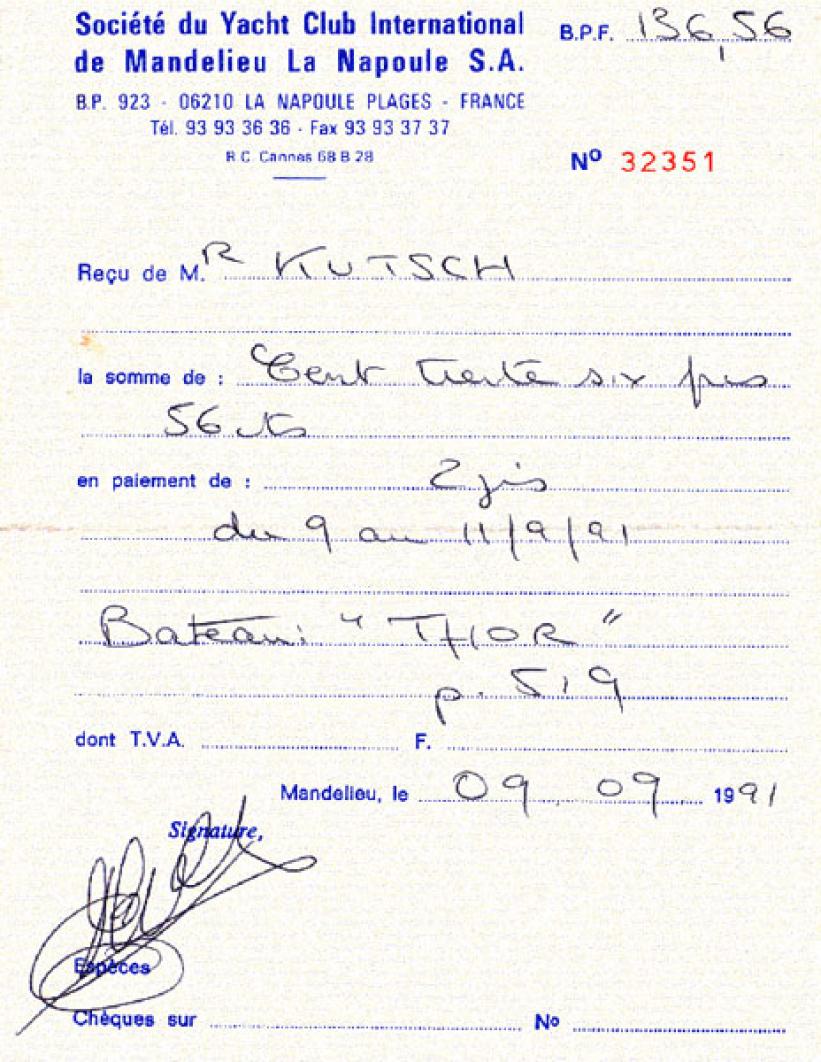 Société du Yacht Club International
de Mandelieu La Napoule S.A.
B.P.F. 136,56
B.P. 923 - 06210 LA NAPOULE PLAGES - FRANCE
Tél. 93 93 36 36 - Fax 93 93 37 37
R.C. Cannes 68 B 28
Nº 32351
Reçu de M.R KUTSCH
la somme de : Cent trente six frs
56 cts
en paiement de : 2 jrs
du 9 au 11/9/91
Bateau: "THOR"
p. 519
dont T.V.A. F.
Mandelieu, le 09 09 1991
Signature,
Espèces
Chèques sur Nº